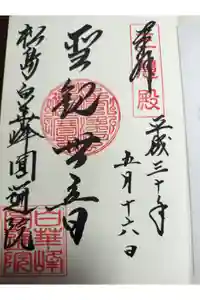 奉拝
平成三十年
五月十六日
聖観世音
松島白華峰圓通院
白華峰